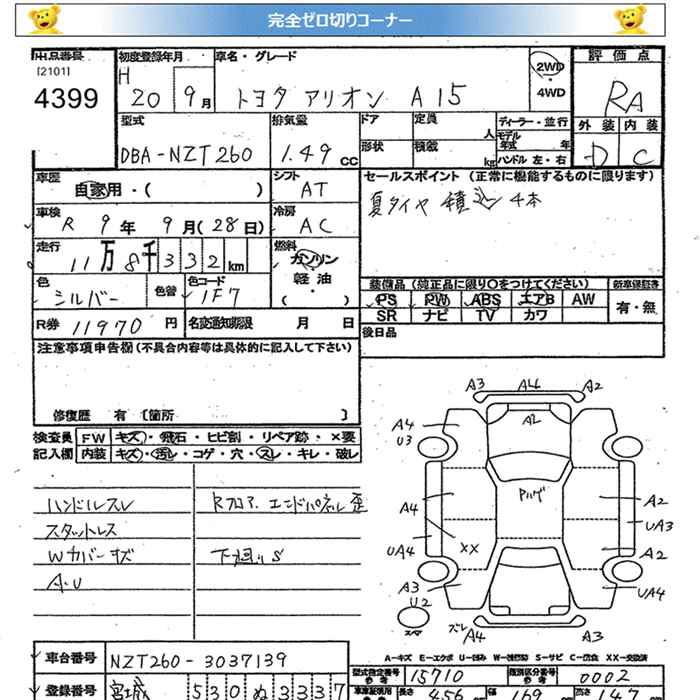 完全ゼロ切りコーナー
出品番号 初度登録年月 車名・グレード 評価点
[2101]
4399
H 20 9月 トヨタ アリオン A15 2WD・4WD RA
型式 排気量 ドア 定員 人 ディーラー・並行 外装 内装
DBA-NZT260 1.49 CC 形状 積載 kg モデル年式 年 ハンドル左・右 D C
車歴 自家用・( ) シフト AT セールスポイント (正常に機能するものに限ります)
車検 R 9年 9月(28日) 冷房 AC 夏タイヤ 積 4本
走行 11万8千332km 燃料 ガソリン 軽油・( )
装備品(純正品に限り○をつけてください) 新車保証書
色 シルバー 色替 色コード 1F7 PS PW ABS エアB AW 有・無
SR ナビ TV カワ
R券 11970円 名変通知期限 月 日 後日品
注意事項申告欄(不具合内容等は具体的に記入して下さい)
修復歴 有 〔箇所 〕
検査員 FW キズ・飛石・ヒビ割・リペア跡・×要
記入欄 内装 キズ・汚レ・コゲ・穴・スレ・キレ・破レ
ハンドルスレ Rフロア、エンドパネル歪
スタットレス
Wカバーキズ 下廻りS
A・U
A3 A46 A2
A4 U3 A2
A4 Pハゲ A2
UA3
UA4 XX A2
A3 U2 UA4
スレ A4 A3
スペア
A-キズ E-エクボ U-凹み W-補修跡 S-サビ C-腐食 XX-交換済
車台番号 NZT260-3037139 型式指定番号 参考 15710 類別区分番号 参考 0002
登録番号 宮城 530 ぬ 3337 車庫証明用 参考 長さ 456 幅 169 高さ 147